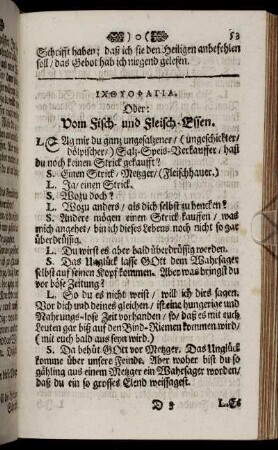 ) o ( 53
Schrifft haben; daß ich sie den Heiligen anbefehlen
soll/ das Gebot hab ich nirgend gelesen.
ΙΧΘΥΟΦΑΓΙΑ.
Oder:
Vom Fisch- und Fleisch-Essen.
L. Sag mir du ganz ungesalzener/ (ungeschickter/
dölpischer/) Salz-Speis-Verkauffer, hast
du noch keinen Strick gekaufft?
S. Einen Strick/ Metzger/ (Fleischhauer.)
L. Ja/ einen Strick.
S. Wozu doch?
L. Wozu anders/ als dich selbst zu hencken?
S. Andere mögen einen Strick kauffen/ was
mich angehet/ bin ich dieses Lebens noch nicht so gar
überdrüssig.
L. Du wirst es aber bald überdrüssig werden.
S. Das Unglück lasse GOtt dem Wahrsager
selbst auf seinen Kopf kommen. Aber was bringst du
vor böse Zeitung?
L. So du es nicht weist/ will ich dirs sagen.
Vor dich und deines gleichen/ ist eine hungerige und
Nahrungs-lose Zeit vorhanden/ so/ daß es mit euch
Leuten gar biß auf den Bind-Riemen kommen wird/
(mit euch bald aus seyn wird.)
S. Da behüt GOtt vor Metzger. Das Unglück
komme über unsere Feinde. Aber woher bist du so
gähling aus einem Metzger ein Wahrsager worden/
daß du ein so grosses Elend weissagest.
D 3 L. Es